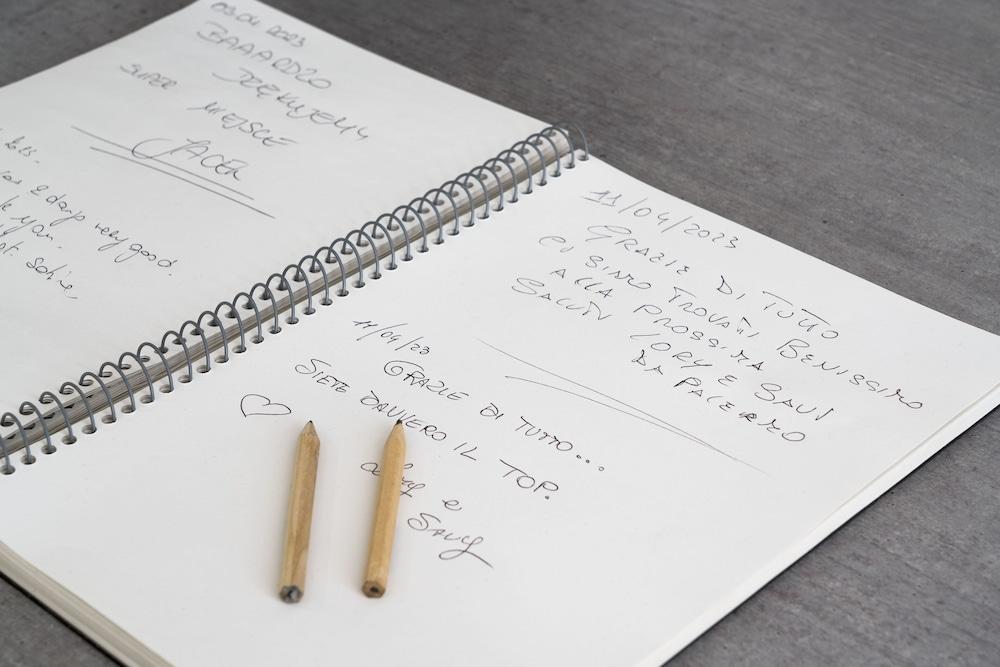 03.04 2023
BAAARDZO
DZIĘKUJEMY
SUPER MIEJSCE
JACEK
2 days very good.
you.
11/04/2023
GRAZIE DI TUTTO
CI SIMO TROVATI BENISSIMO
ALLA PROSSIMA
SALUTI LORY E SAUI
DA PALERMO
11/04/23
GRAZIE DI TUTTO...
SIETE DAVVERO IL TOP.
e
SAUY